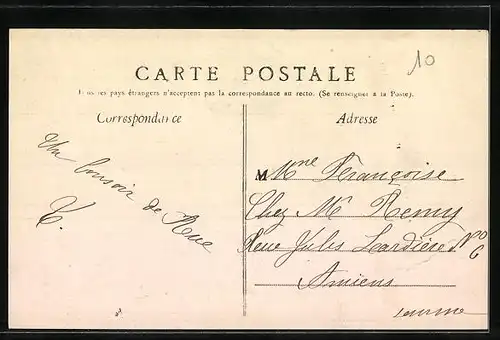 10
CARTE POSTALE
Tous les pays étrangers n'acceptent pas la correspondance au recto. (Se renseigner à la Poste).
Correspondance
Adresse
Un bonsoir de Rue
M Mme Françoise
Chez M Remy
Rue Jules Lardière No 6
Amiens
Somme